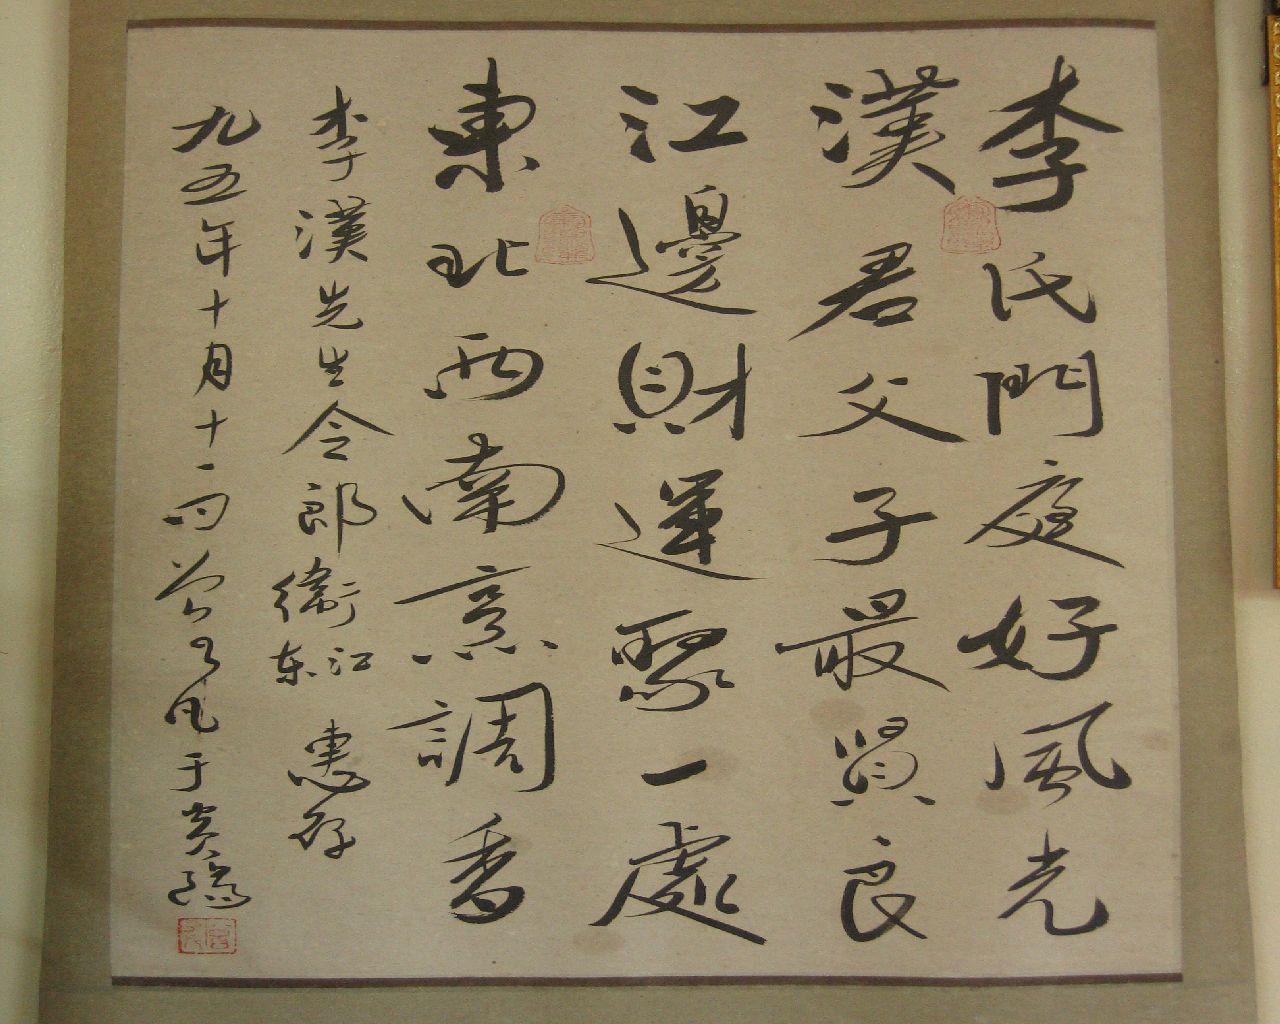 李氏門庭好風光
漢君父子最賢良
江邊財運聚一處
東北西南意調香
李漢先生令郎衛江東惠存
九五年十月十一日
于炎